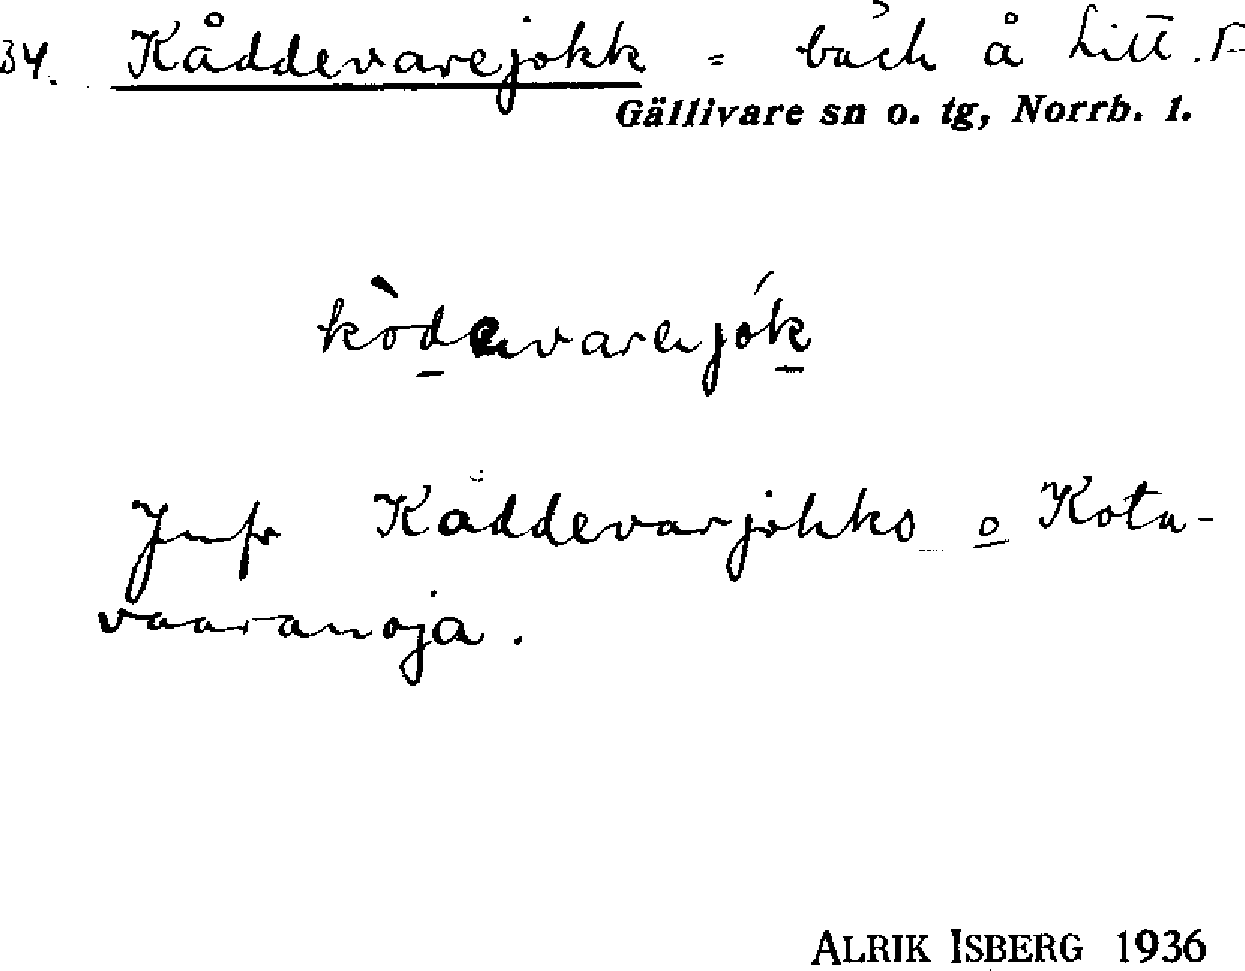 34. Kåddevarejokk = bäck å Litt. F
Gällivare sn o. tg, Norrb. l.
kòdevarejók
Jmfr Kåddevarjohko o Kota-
vaaranoja.
ALRIK ISBERG 1936